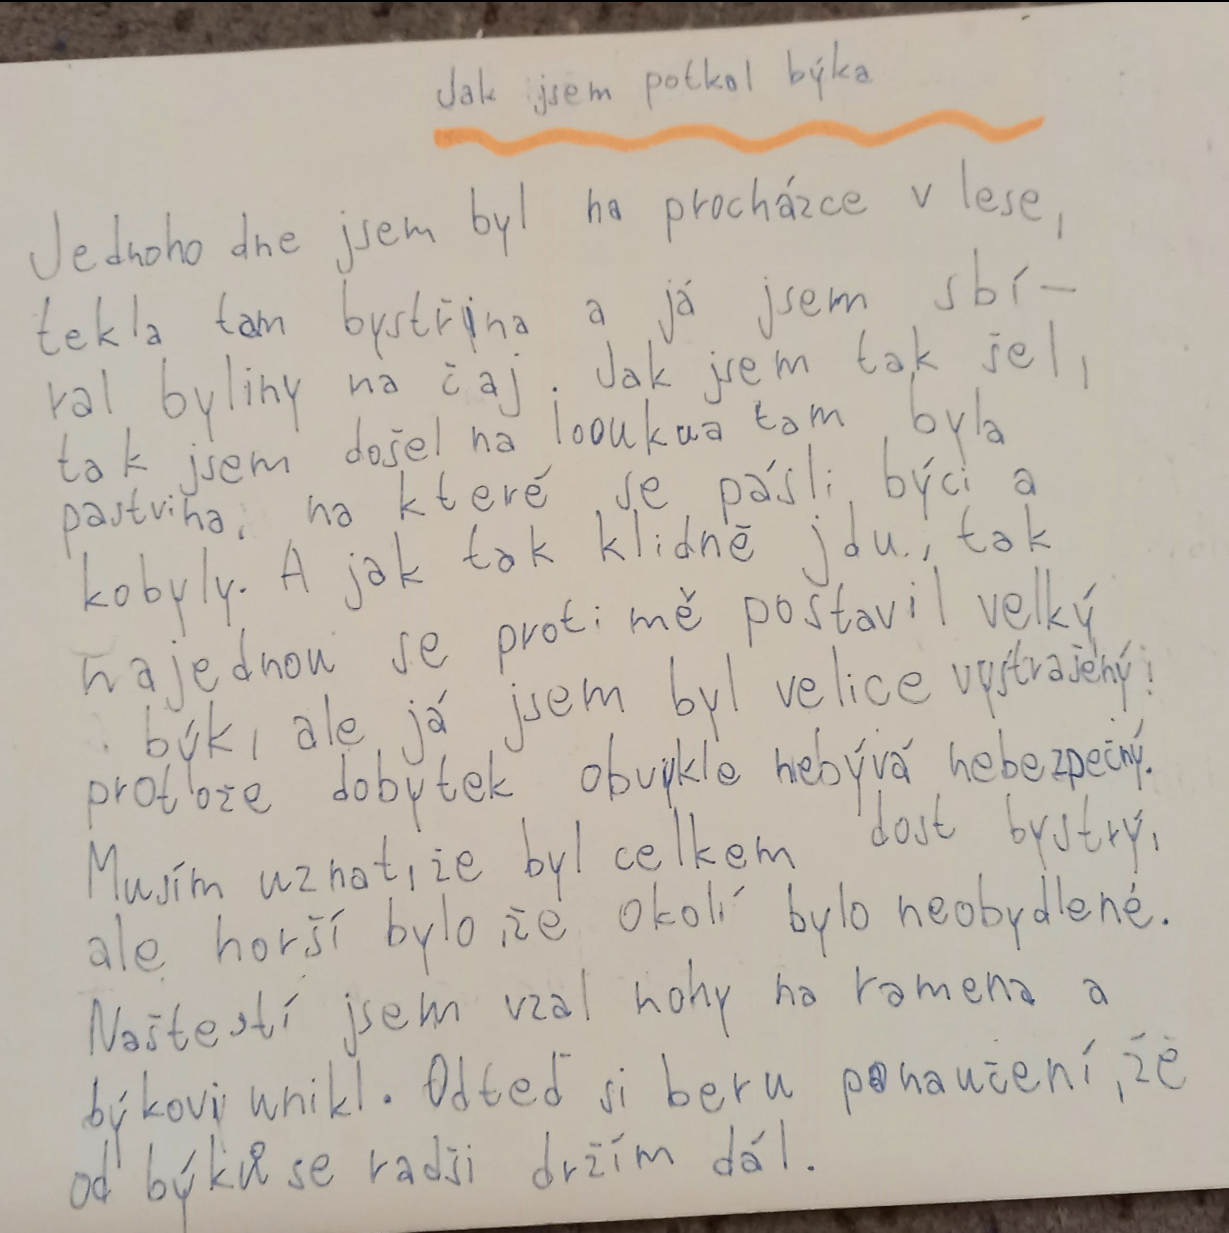 Jak jsem potkal býka
Jednoho dne jsem byl na procházce v lese,
tekla tam bystřina a já jsem sbí-
ral byliny na čaj. Jak jsem tak šel,
tak jsem došel na loouku a tam byla
pastvina, na které se pásli býci a
kobyly. A jak tak klidně jdu, tak
najednou se proti mě postavil velký
býk, ale já jsem byl velice vystrašený!
protože dobytek obvykle nebývá nebezpečný.
Musím uznat, že byl celkem dost bystrý,
ale horší bylo, že okolí bylo neobydlené.
Naštestí jsem vzal nohy na ramena a
býkovi unikl. Odteď si beru ponaučení, že
od býků se radši držím dál.